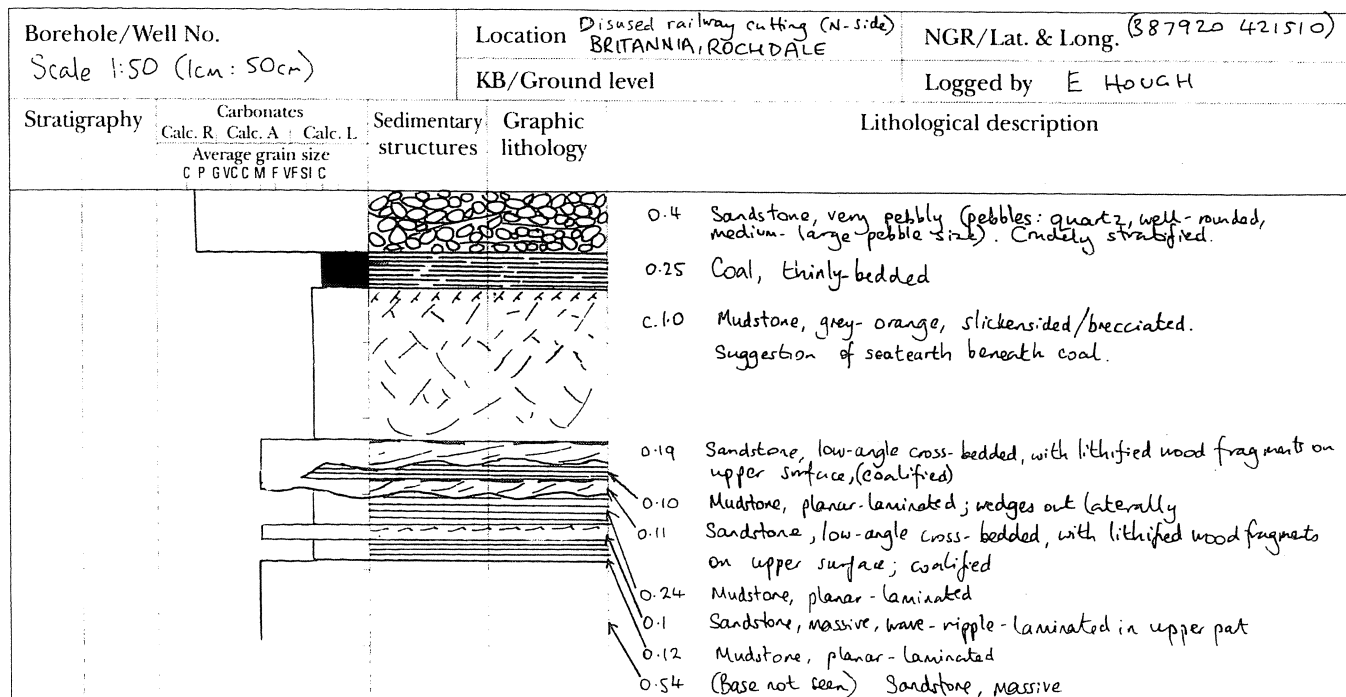 Borehole/Well No.
Scale 1:50 (1cm : 50cm)
Location Disused railway cutting (N-side)
BRITANNIA, ROCHDALE
NGR/Lat. & Long. (387920 421510)
KB/Ground level
Logged by E HOUGH
Stratigraphy
Carbonates
Calc. R Calc. A Calc. L
Average grain size
C P G VC C M F VF SI C
Sedimentary
structures
Graphic
lithology
Lithological description
0.4 Sandstone, very pebbly (pebbles: quartz, well-rounded,
medium-large-pebble size). Crudely stratified.
0.25 Coal, thinly-bedded
c.1.0 Mudstone, grey-orange, slickensided/brecciated.
Suggestion of seatearth beneath coal.
0.19 Sandstone, low-angle cross-bedded, with lithified wood fragments on
upper surface, (coalified)
0.10 Mudstone, planar-laminated; wedges out laterally
0.11 Sandstone, low-angle cross-bedded, with lithified wood fragments
on upper surface; coalified
0.24 Mudstone, planar-laminated
0.1 Sandstone, massive, wave-ripple-laminated in upper pat
0.12 Mudstone, planar-laminated
0.54 (Base not seen) Sandstone, massive